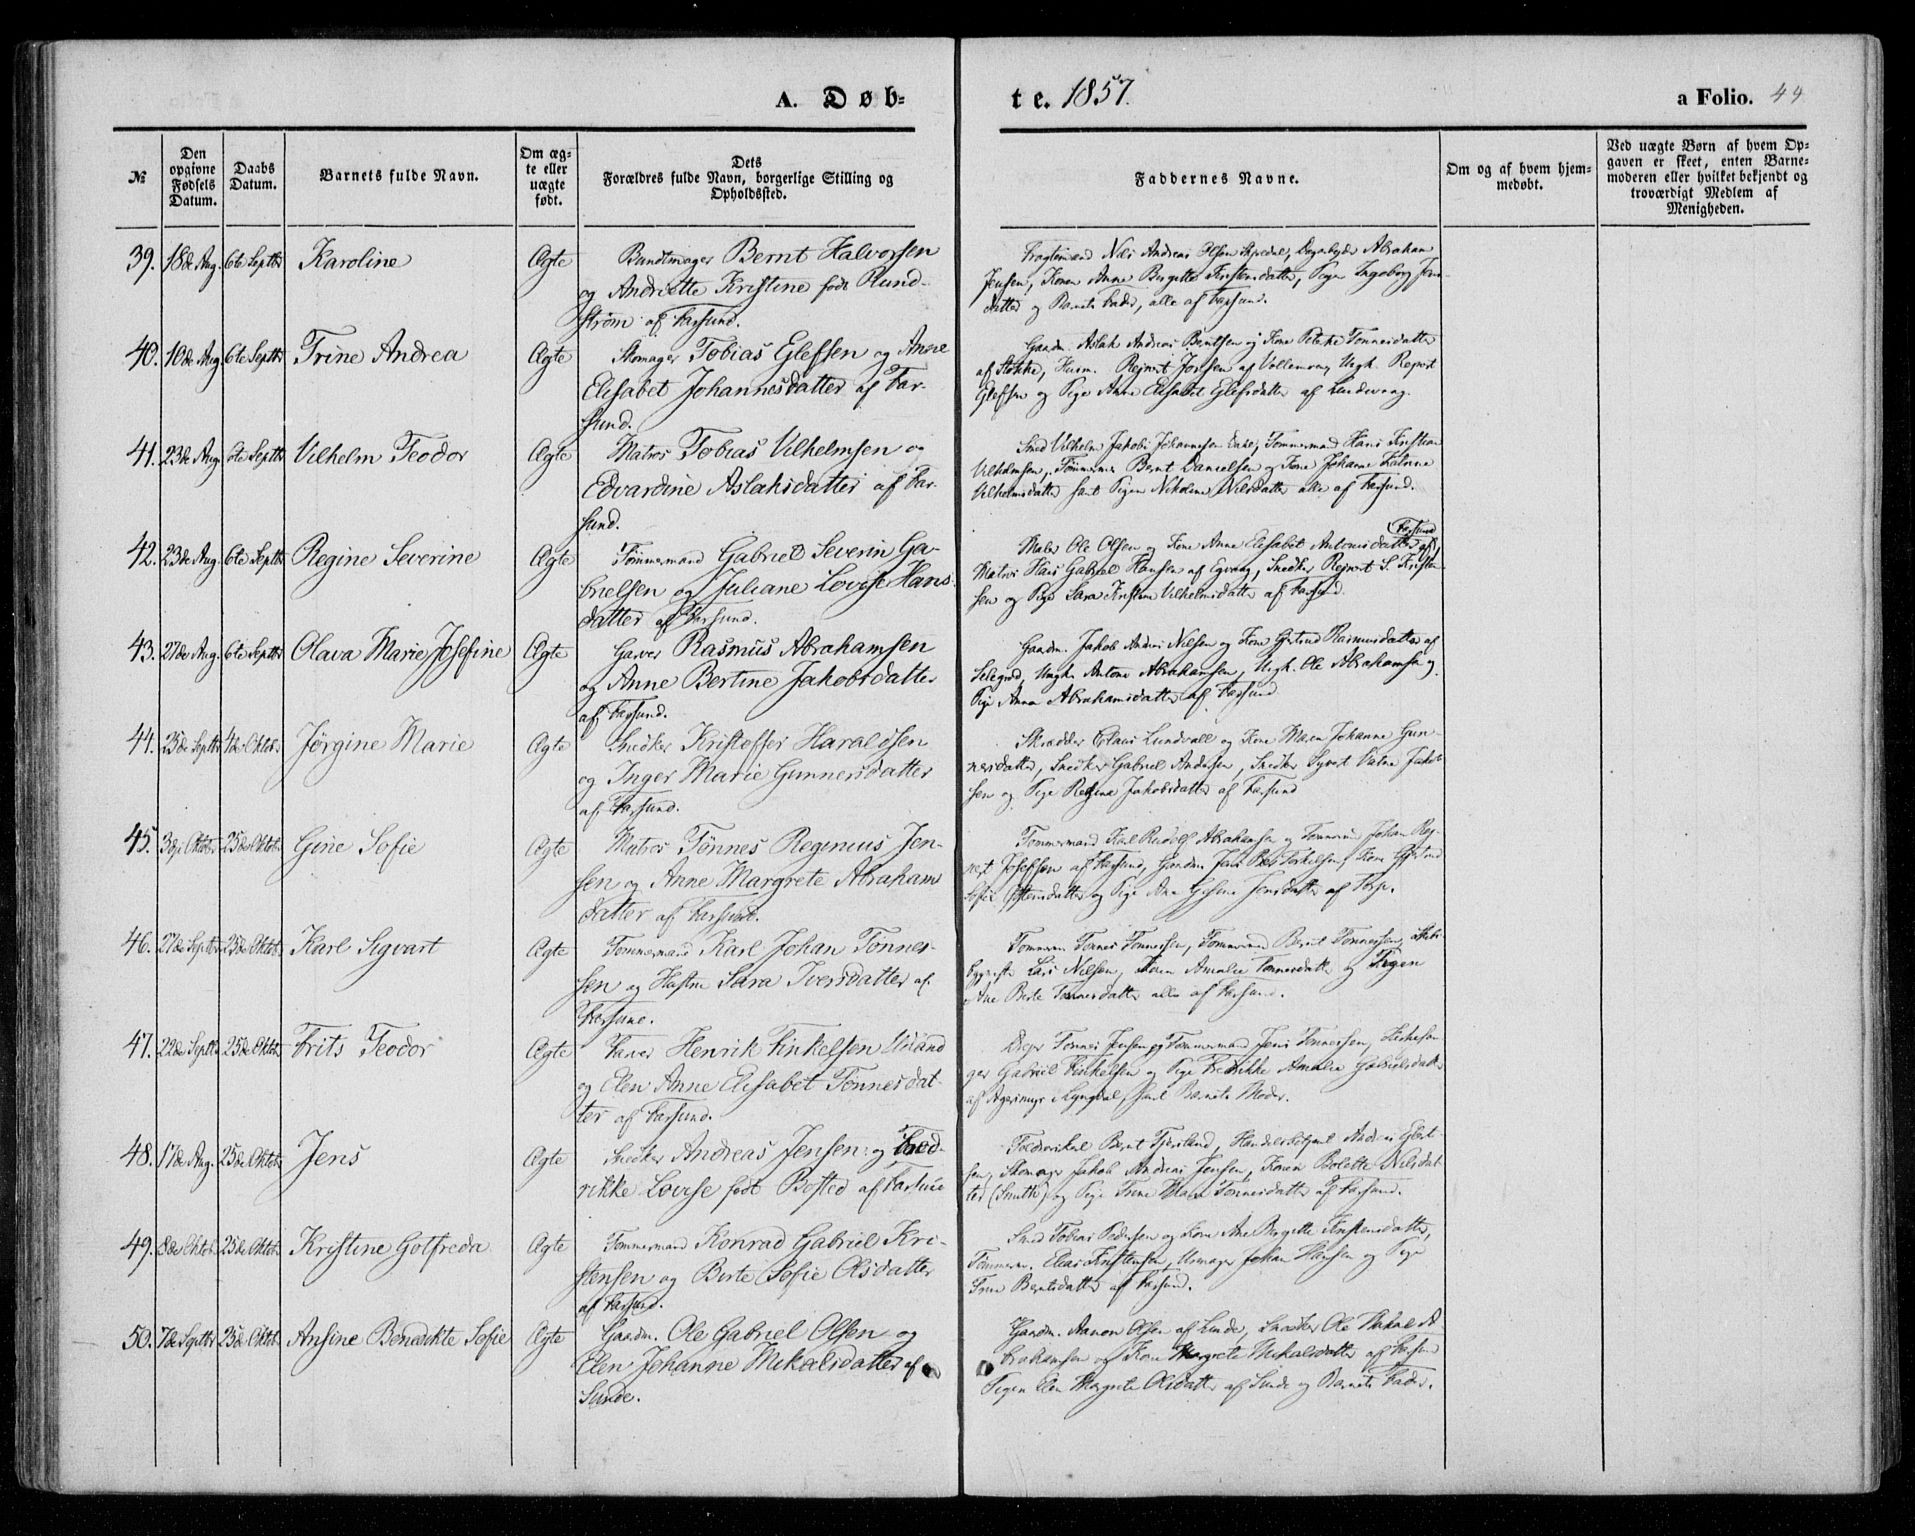 A. Døb-
te. 1857.
a Folio. 44
№
Den opgivne Fødsels Datum.
Daabs Datum.
Barnets fulde Navn.
Om ægte eller uægte født.
Dets Forældres fulde Navn, borgerlige Stilling og Opholdssted.
Faddernes Navne.
Om og af hvem hjemmedøbt.
Ved uægte Børn af hvem Opgaven er skeet, enten Barnemoderen eller hvilket bekjendt og troværdigt Medlem af Menigheden.
39. 18de Aug. 6te Septbr Karoline Ægte Bundtmager Bernt Halvorsen
og Andriette Kristine født Rund-
strøm af Farsund.
Andreas Olsen Abraham
Jensen, Konen Anne Birgitte Kristensdatter, Pigen Ingeborg Jens-
datter og Barnets Fader, alle af Farsund.
40. 10de Aug. 6te Septbr Trine Andrea Ægte Skomager Tobias Eglefsen og Anne
Elisabet Johannesdatter af Far-
sund.
Gaardm. Aslak Andreas Berntsen og Kone Tønnesdatter
af Stokke, Husm. Reinert Jensen af Ungk. Reinert
Eglefsen og Pige Anne Elisabet Eglefsdatter af
41. 23de Aug. 6te Septbr Vilhelm Teodor Ægte Matros Tobias Vilhelmsen og
Edvardine Aslaksdatter af Far-
sund.
Smed Vilhelm Jakobi Johannesen Tømmermand Hans Kristian
Vilhelmsen, Tømmerm. Bernt Danielsen og Kone Johanne
Vilhelmsdatter samt Pigen Nikoline Nilsdatter alle af Farsund.
42. 23de Aug. 6te Septbr Regine Severine Ægte Tømmermand Gabriel Severin Ga-
brielsen og Juliane Lovise Hans-
datter af Farsund.
Maler Ole Olsen og Kone Anne Elisabet Antonisdatter af Farsund
Matros Hans Gabriel Hansen af Snedker Reinert S. Kristen-
sen og Pige Sara Kristine Vilhelmsdatter af Farsund.
43. 27de Aug. 6te Septbr Olava Marie Josefine Ægte Garver Rasmus Abrahamsen
og Anne Bertine Jakobsdatter
af Farsund.
Gaardm. Jakob Andreas Nilsen og Kone Gjertrud Rasmusdatter af
Ungk. Antone Abrahamsen, Ungk. Ole Abrahamsen og
Pige Anna Abrahamsdatter af Farsund
44. 25de Septbr 4de Oktob. Jørgine Marie Ægte Snedker Kristoffer Haraldsen
og Inger Marie Gunnersdatter
af Farsund.
Skrædder Claus Lundvall og Kone Maren Johanne Gun-
nersdatter, Snedker Gabriel Andersen, Snedker Syvert Jakob-
sen og Pige Regine Jakobsdatter af Farsund
45. 3die Oktober 25de Oktob. Gine Sofie Ægte Matros Tønnes Reginius Jen-
sen og Anne Margrete Abrahams-
datter af Farsund.
Tømmermand Karl Rudolf Abrahamsen og Tømmerm. Johan Rej-
nert Josefsen af Farsund, Gaardm. Jens Torkelsen, Kone Gjertrud
Sofie og Pige Ane Gesine Jensdatter af Torp.
46. 27de Septbr 25de Oktob. Karl Sigvart Ægte Tømmermand Karl Johan Tønnes-
sen og Hustru Sara Iversdatter af
Farsund.
Tømmerm. Tønnes Tønnessen, Tømmermand Bernt Tønnessen, Skibs-
bygmester Lars Nilsen, Konen Amalie Tønnesdatter og Pigen
Ane Berte Tønnesdatter alle af Farsund.
47. 22de Septbr 25de Oktob. Frits Teodor Ægte Farver Henrik Finkelsen
og Elen Anne Elisabet Tønnesdat-
ter af Farsund.
Tønnes Jensen og Tømmermand Jens Tønnessen, Kirkesan-
ger Gabriel Finkelsen og Pige Fredrikke Amalie Gabrielsdatter
af i Lyngdal, samt Barnets Moder.
48. 17de Aug. 25de Oktob. Jens Ægte Snedker Andreas Jensen og Fred-
rikke Lovise født Bosted af Farsund
Bernt Handelsbetjent Andreas
sen, Skomager Jakob Andreas Jensen, Konen Bolette Nilsdat-
ter (Smith) og Pige Trine Marie Tønnesdatter af Farsund.
49. 8de Oktob. 25de Oktob. Kristine Gotfreda Ægte Tømmermand Konrad Gabriel Kri-
stensen og Berte Sofie Olsdatter
af Farsund.
Smed Tobias Pedersen og Kone Ane Birgitte Kristensdatter,
Tømmerm. Elias Kristensen, Urmager Johan Hansen og Pige
Trine Berntsdatter af Farsund.
50. 7de Septbr 25de Oktob. Ansine Benedikte Sofie Ægte Gaardm. Ole Gabriel Olsen og
Elen Johanne Mikalsdatter af
Sunde.
Gaardm. Aanon Olsen af Lunde, Snedker Ole Mikal A-
brahamsen og Kone Margrete Mikalsdatter af Farsund
Pigen Elen Margrete Olsdatter af Sunde og Barnets Fader.